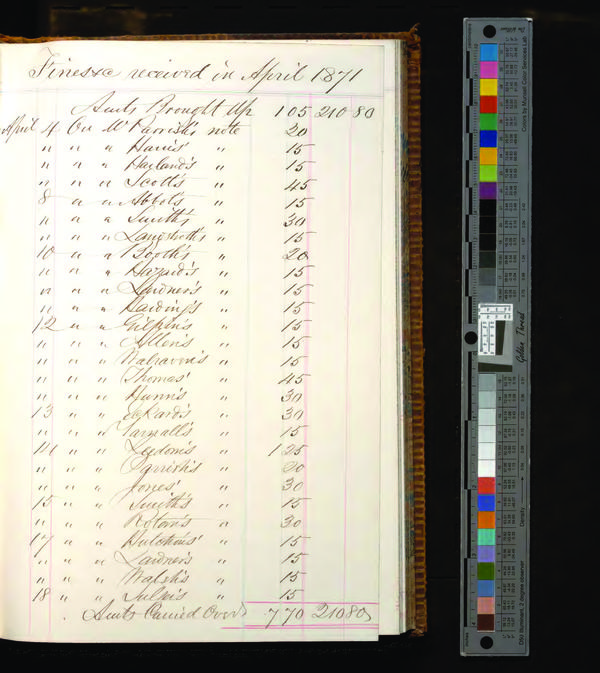 Fines &c received in April 1871
Amts Brought Up 105 210 80
April 4 On Mr Parrish's note 20
" " " Harris' " 15
" " " Hayland's " 15
" " " Scott's " 45
8 " " Abbot's " 15
" " " Smith's " 30
" " " Langstroth's " 15
10 " " Booth's " 20
" " " Hazard's " 15
" " " Lardner's " 15
" " " " 15
12 " " Gilpin's " 15
" " " Allen's " 15
" " " Walraven's " 15
" " " Thomas' " 45
" " " Hunn's " 30
13 " " " 30
" " " Yarnall's " 15
14 " " Leedom's " 125
" " " Parrish's " 20
" " " Jones' " 30
15 " " Smith's " 15
" " " Roton's " 30
17 " " Hutchins' " 15
" " " Lardner's " 15
" " " Walsh's " 15
18 " " " 15
Amts Carried Over 770 210 80
Golden Thread